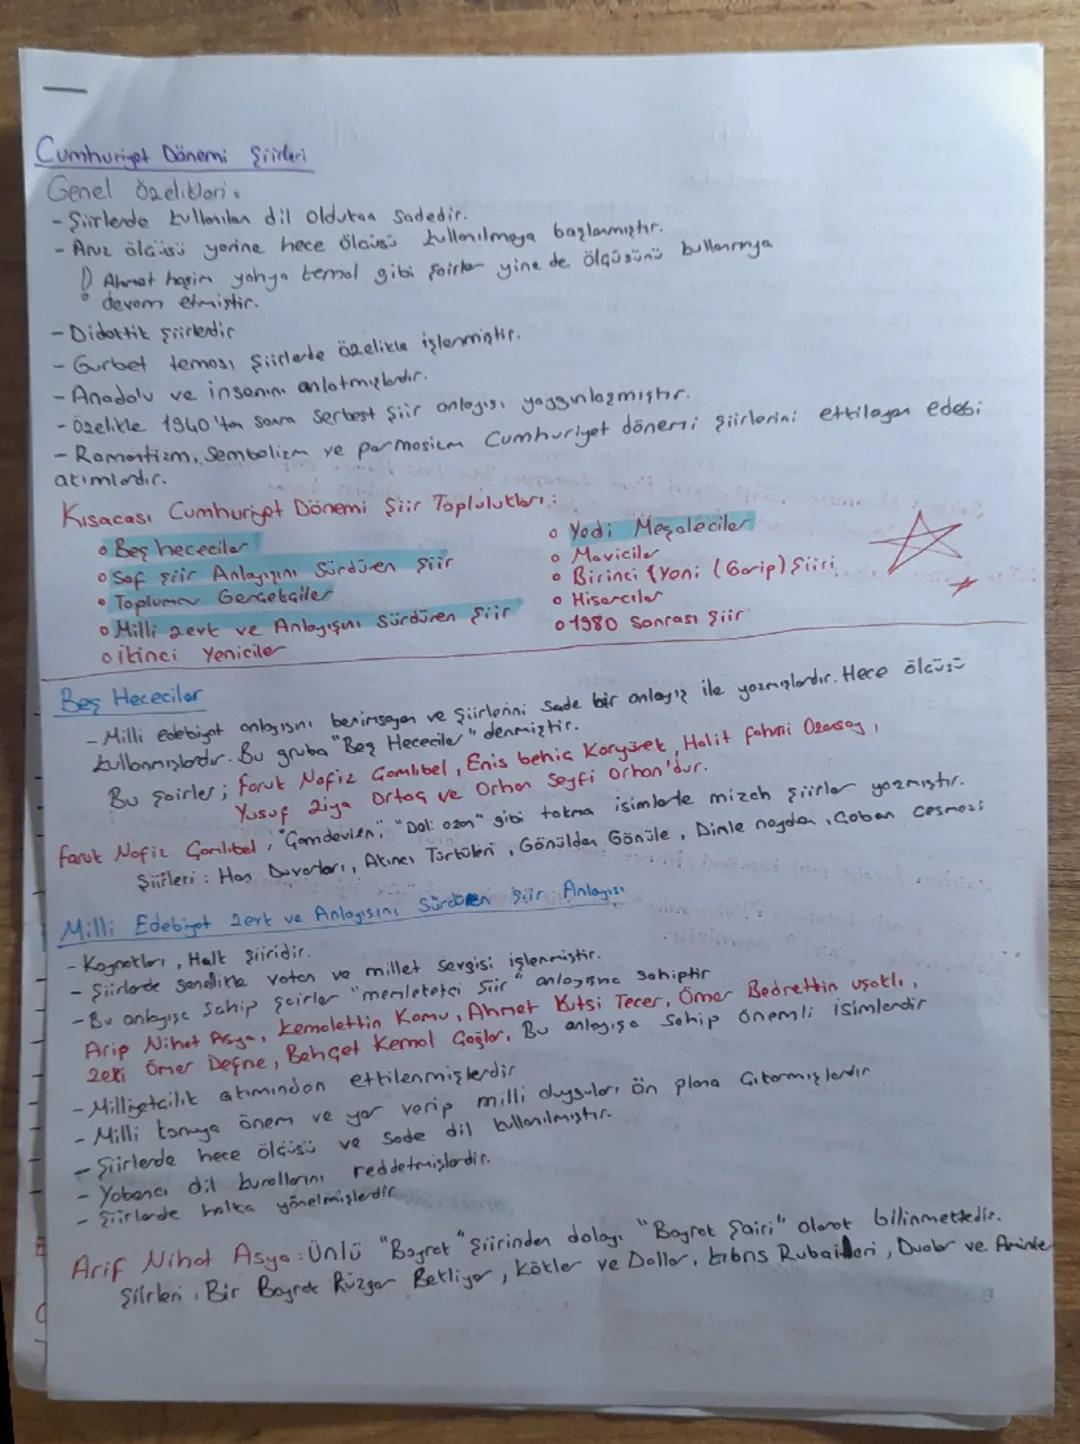 Cumhuriyet Dönemi Şiirleri
Genel Özelikleri.
- Şiirlerde kullanılan dil oldukça sadedir.
- Aruz ölçüsü yerine hece ölçüsü kullanılmaya başlanmıştır.
Ahmet haşim yahya kemal gibi şairler yine de ölçüsünü kullanmya
devam etmiştir.
- Didaktik şiirlerdir
- Gurbet teması şiirlerde özelikle işlenmiştir.
- Anadolu ve insanını anlatmışlardır.
- Özelikle 1940'tan sonra serbest şiir anlayışı yaygınlaşmıştır.
- Romantizm, Sembolizm ve parnasizm Cumhuriyet dönemi şiirlerini etkileyen edebi
akımlardır.
Kısacası Cumhuriyet Dönemi Şiir Toplulukları:
o Beş hececiler
o Saf şiir Anlayışını Sürdüren şiir
o Toplumcu Gerçekçiler
o Milli zevk ve Anlayışını sürdüren şiir
o ikinci Yeniciler
o Yedi Meşaleciler
o Maviciler
o Birinci Yeni (Garip) Şiiri
o Hisarcılar
o 1980 Sonrası şiir
Beş Hececiler
- Milli edebiyat anlayışını benimseyen ve şiirlerini sade bir anlayış ile yazmışlardır. Hece ölçüsü
kullanmışlardır. Bu gruba "Beş Hececiler" denmiştir.
Bu şairler; Faruk Nafiz Çamlıbel, Enis behiç Koryürek, Halit fahri Ozansoy,
Yusuf ziya Ortaç ve Orhan Seyfi Orhan'dur.
Faruk Nafiz Çamlıbel, "Çamdeviren", "Deli ozan" gibi takma isimlerle mizah şiirler yazmıştır.
Şiirleri: Han Duvarları, Akıncı Türküleri, Gönülden Gönüle, Dinle neyden, Çoban çeşmesi
Milli Edebiyat zevk ve Anlayışını Sürdüren şiir Anlayışı
- Kaynakları, Halk şiiridir.
- Şiirlerde genellikle vatan ve millet sevgisi işlenmiştir.
- Bu anlayışa sahip şairler "memleketçi şiir" anlayışına sahiptir
Arip Nihat Asya, Kemalettin Kamu, Ahmet Kutsi Tecer, Ömer Bedrettin uşaklı,
zeki Ömer Defne, Behçet Kemal Çağlar, Bu anlayışa sahip önemli isimlerdir
- Milliyetçilik akımından etkilenmişlerdir
- Milli konuya önem ve yer verip milli duyguları ön plana çıkarmışlardır
- Şiirlerde hece ölçüsü ve sade dil kullanılmıştır.
- Yabancı dil kurallarını reddetmişlerdir.
- Şiirlerde halka yönelmişlerdir
Arif Nihat Asya: Ünlü "Bayrak" şiirinden dolayı "Bayrak Şairi" olarak bilinmektedir.
Şiirleri: Bir Bayrak Rüzgar Bekliyor, Kökler ve Dallar, kıbrıs Rubaileri, Dualar ve Aminler